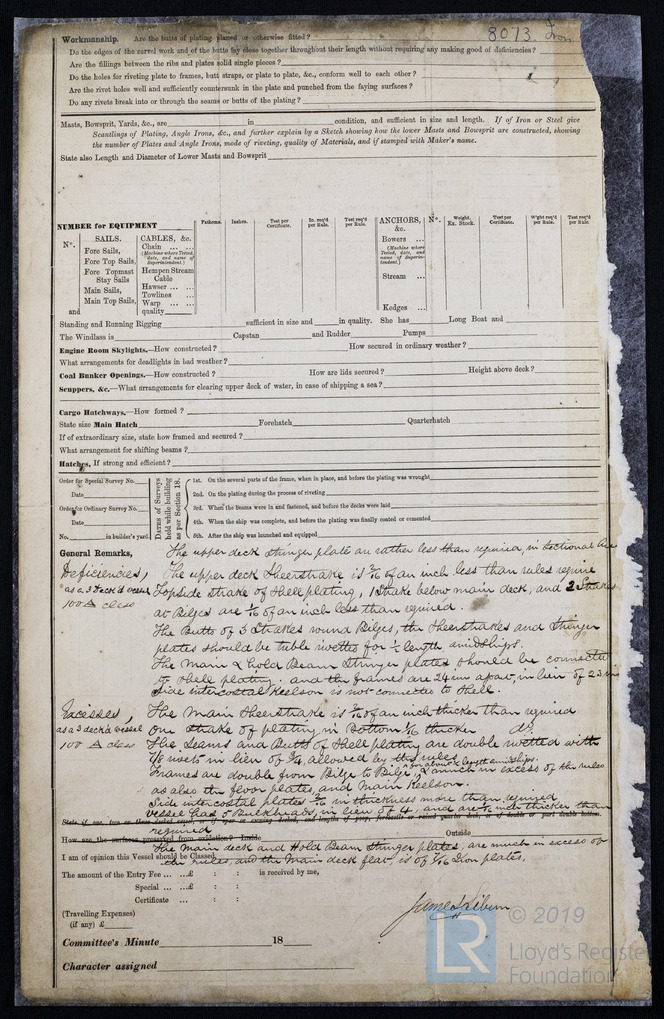 8073 Iron
Workmanship. Are the butts of plating planed or otherwise fitted?
Do the edges of the carvel work and of the butts lay close together throughout their length without requiring any making good of deficiencies?
Are the fillings between the ribs and plates solid single pieces?
Do the holes for riveting plate to frames, butt straps, or plate to plate, &c., conform well to each other?
Are the rivet holes well and sufficiently countersunk in the plate and punched from the faying surfaces?
Do any rivets break into or through the seams or butts of the plating?
Masts, Bowsprit, Yards, &c., are in condition, and sufficient in size and length. If of Iron or Steel give
Scantlings of Plating, Angle Irons, &c., and further explain by a Sketch showing how the lower Masts and Bowsprit are constructed, showing
the number of Plates and Angle Irons, mode of riveting, quality of Materials, and if stamped with Maker's name.
State also Length and Diameter of Lower Masts and Bowsprit
NUMBER for EQUIPMENT
Fathoms. Inches. Test per Certificate. In. req'd per Rule. Test req'd per Rule.
ANCHORS, &c. No. Weight. Ex. Stock. Test per Certificate. W'ght req'd per Rule. Test req'd per Rule.
No. SAILS. CABLES, &c.
Fore Sails, Chain ... ...
Fore Top Sails, (Machine where Tested, date, and name of Superintendent.)
Fore Topmast Stay Sails Hempen Stream Cable
Main Sails, Hawser ... ...
Main Top Sails, Towlines ...
Warp ... ...
and quality
Bowers ...
(Machine where Tested, date, and name of Superintendent.)
Stream ...
Kedges ...
Standing and Running Rigging sufficient in size and in quality. She has Long Boat and
The Windlass is Capstan and Rudder Pumps
Engine Room Skylights.—How constructed? How secured in ordinary weather?
What arrangements for deadlights in bad weather?
Coal Bunker Openings.—How constructed? How are lids secured? Height above deck?
Scuppers, &c.—What arrangements for clearing upper deck of water, in case of shipping a sea?
Cargo Hatchways.—How formed?
State size Main Hatch Forehatch Quarterhatch
If of extraordinary size, state how framed and secured?
What arrangement for shifting beams?
Hatches, If strong and efficient?
Order for Special Survey No.
Date
Order for Ordinary Survey No.
Date
No. in builder's yard.
DATES of Surveys held while building as per Section 18.
1st. On the several parts of the frame, when in place, and before the plating was wrought
2nd. On the plating during the process of riveting
3rd. When the beams were in and fastened, and before the decks were laid
4th. When the ship was complete, and before the plating was finally coated or cemented
5th. After the ship was launched and equipped
General Remarks, The upper deck stringer plate are rather less than required, in Sectional Are
Deficiencies, The upper deck Sheerstrake is 2/16 of an inch less than rules require
as a 3 Deck'd vessel Topside strake of Shell plating, 1 strake below main deck, and 2 Strakes
100 A class at Bilges are 1/16 of an inch less than required.
The Butts of 3 Strakes round Bilges, the Sheerstrakes and Stringer
plates should be treble rivetted for 1/2 length amidships.
The Main & Hold Beam Stringer plates should be connected
to Shell plating. and the frames are 24 in apart, in lieu of 23 in
Side intercostal Keelson is not connected to Shell.
Excesses, The Main Sheerstrake is 2/16 of an inch thicker than required
as a 3 deck'd vessel One strake of plating in Bottom 1/16 thicker do.
100 A class The Seams and Butts of Shell plating are double rivetted with
7/8 rivets in lieu of 3/4, allowed by the rules
for about 1/2 length amidships.
Frames are double from Bilge to Bilge, & much in excess of the rules
as also the floor plates, and Main Keelson.
Side intercostal plates 2/16 in thickness more than required
Vessel has 5 Bulkheads, in lieu of 4, and are 1/16 inch thicker than
required
How are the surfaces preserved from oxidation? Inside Outside
The Main deck and Hold Beam Stringer plates, are much in excess of
I am of opinion this Vessel should be Classed
the rules, and the Main deck flat, is of 7/16 Iron plates.
The amount of the Entry Fee ... ...£ : : is received by me,
Special ... ...£ : :
Certificate ... : :
(Travelling Expenses)
(if any) £
Committee's Minute 18
Character assigned
© 2019
LR
Lloyd's Register
Foundation